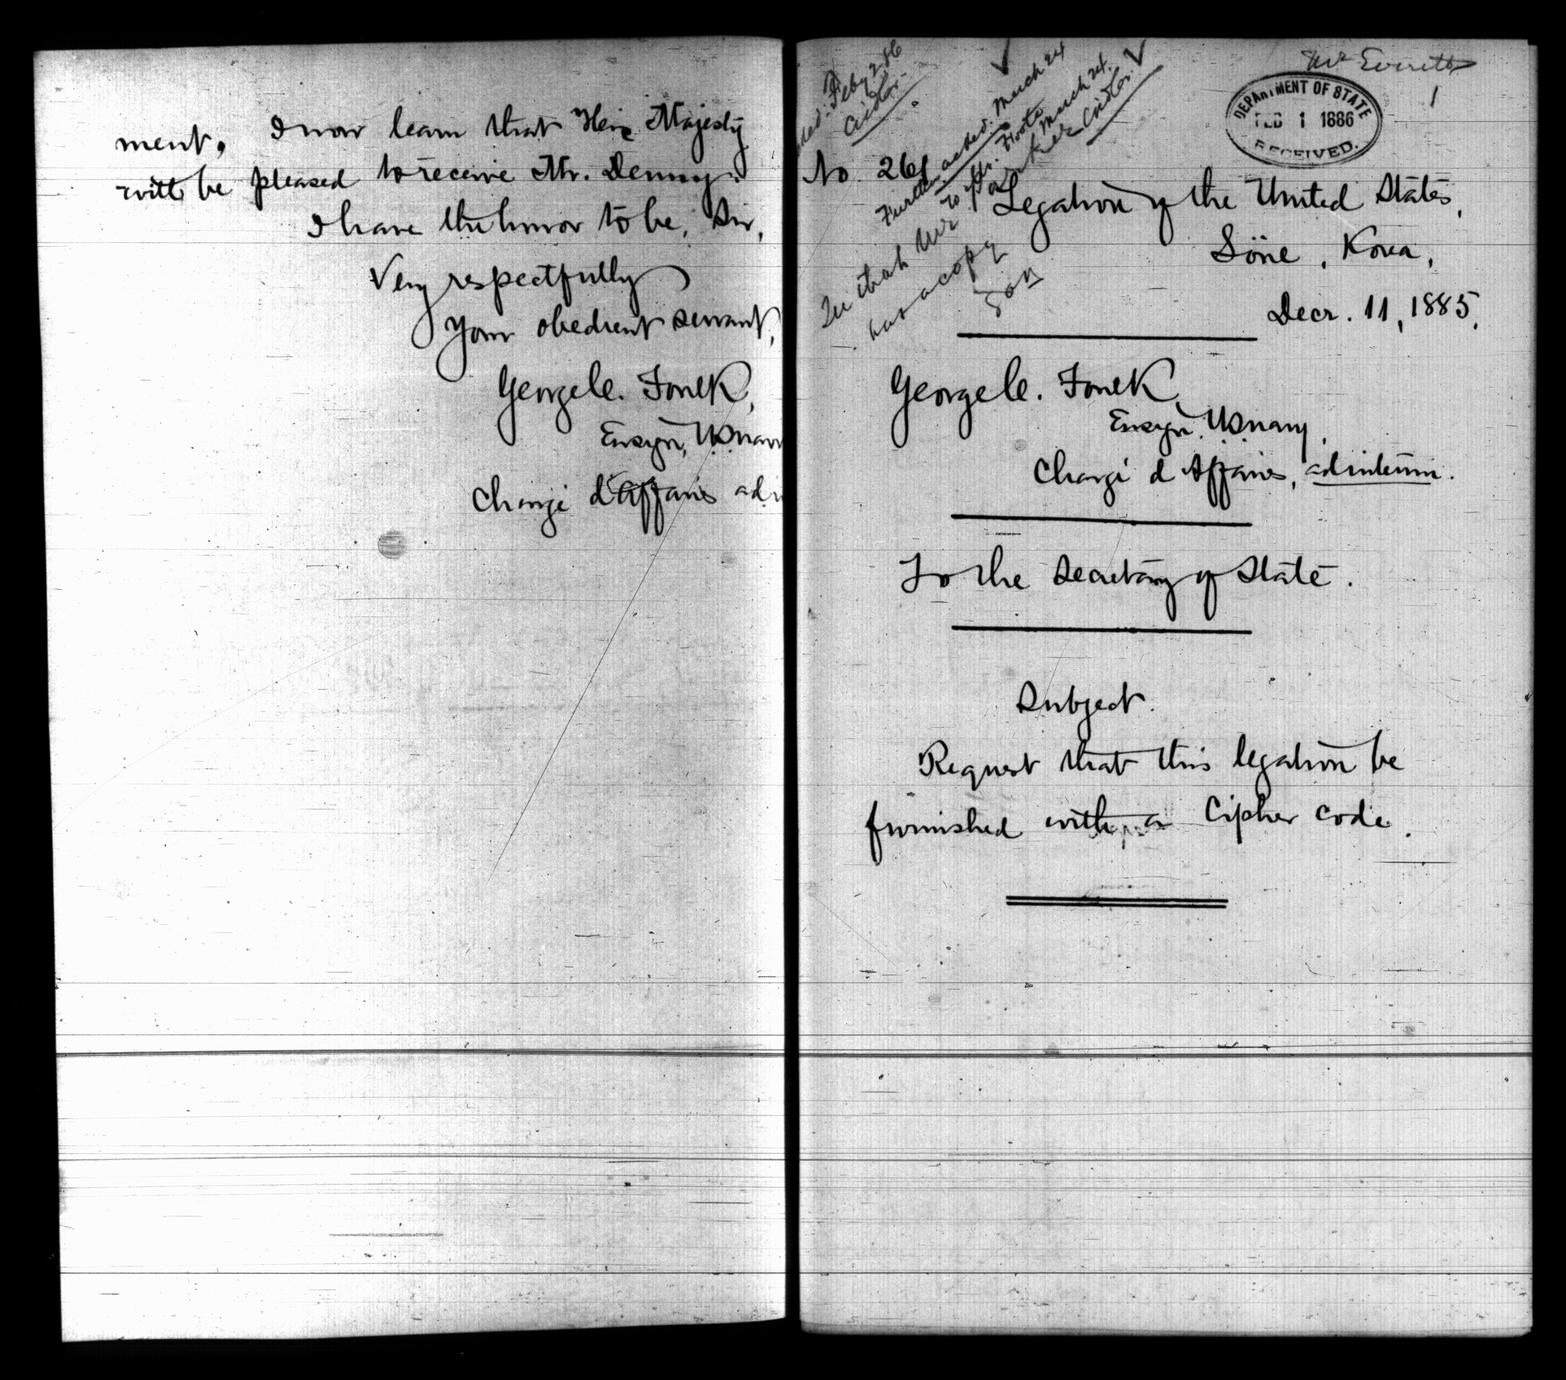 ment. I now learn that Her Majesty
will be pleased to receive Mr. Denny.
I have the honor to be, Sir,
Very respectfully
Your obedient servant,
George C. Foulk,
Ensign, U.S. Navy
Chargé d'Affaires ad
Mr Everett
1
DEPARTMENT OF STATE
FEB 1 1886
RECEIVED.
Feby 2 86
Cirdlor.
Further acked. March 24
To Mr. Foote March 24.
Parker Cirdlor.
has a copy
No 261
Legation of the United States,
Söne, Korea,
Decr. 11, 1885.
George C. Foulk
Ensign, U.S. Navy,
Chargé d'Affaires, ad interim.
To the Secretary of State.
Subject.
Request that this legation be
furnished with a Cipher code.